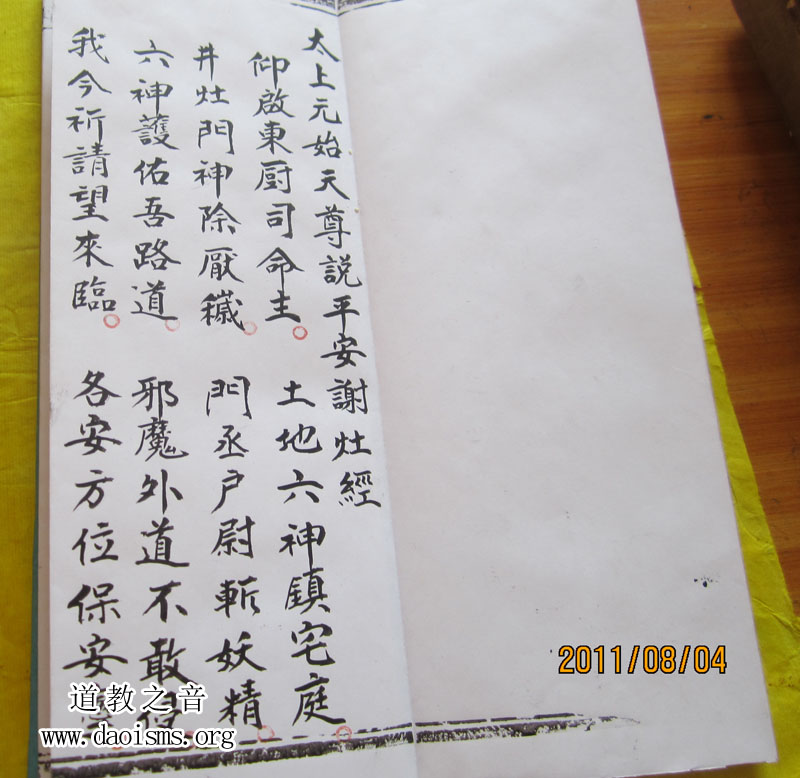 太上元始天尊説平安謝灶經
仰啟東厨司命主 土地六神鎮宅庭
井灶門神除厭穢 門丞户尉斬妖精
六神護佑吾路道 邪魔外道不敢
我今祈請望來臨 各安方位保安
2011/08/04
道教之音
www.daoisms.org